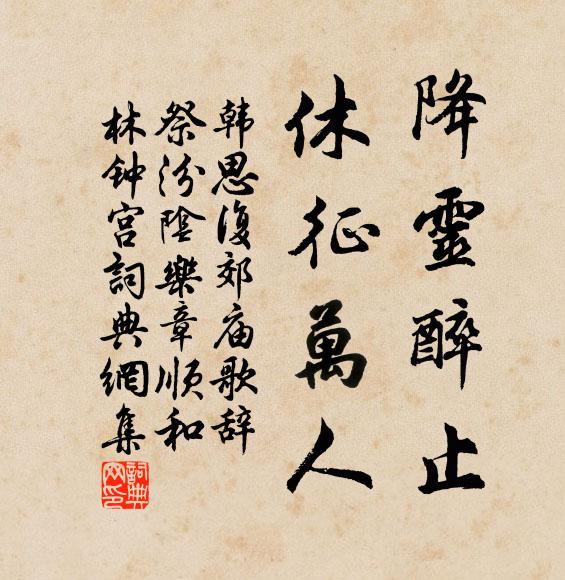 降靈醉止
休征萬人
韩思復郊庙歌辞
祭汾陰樂章順和
林钟宫詞典網集
詞典网印